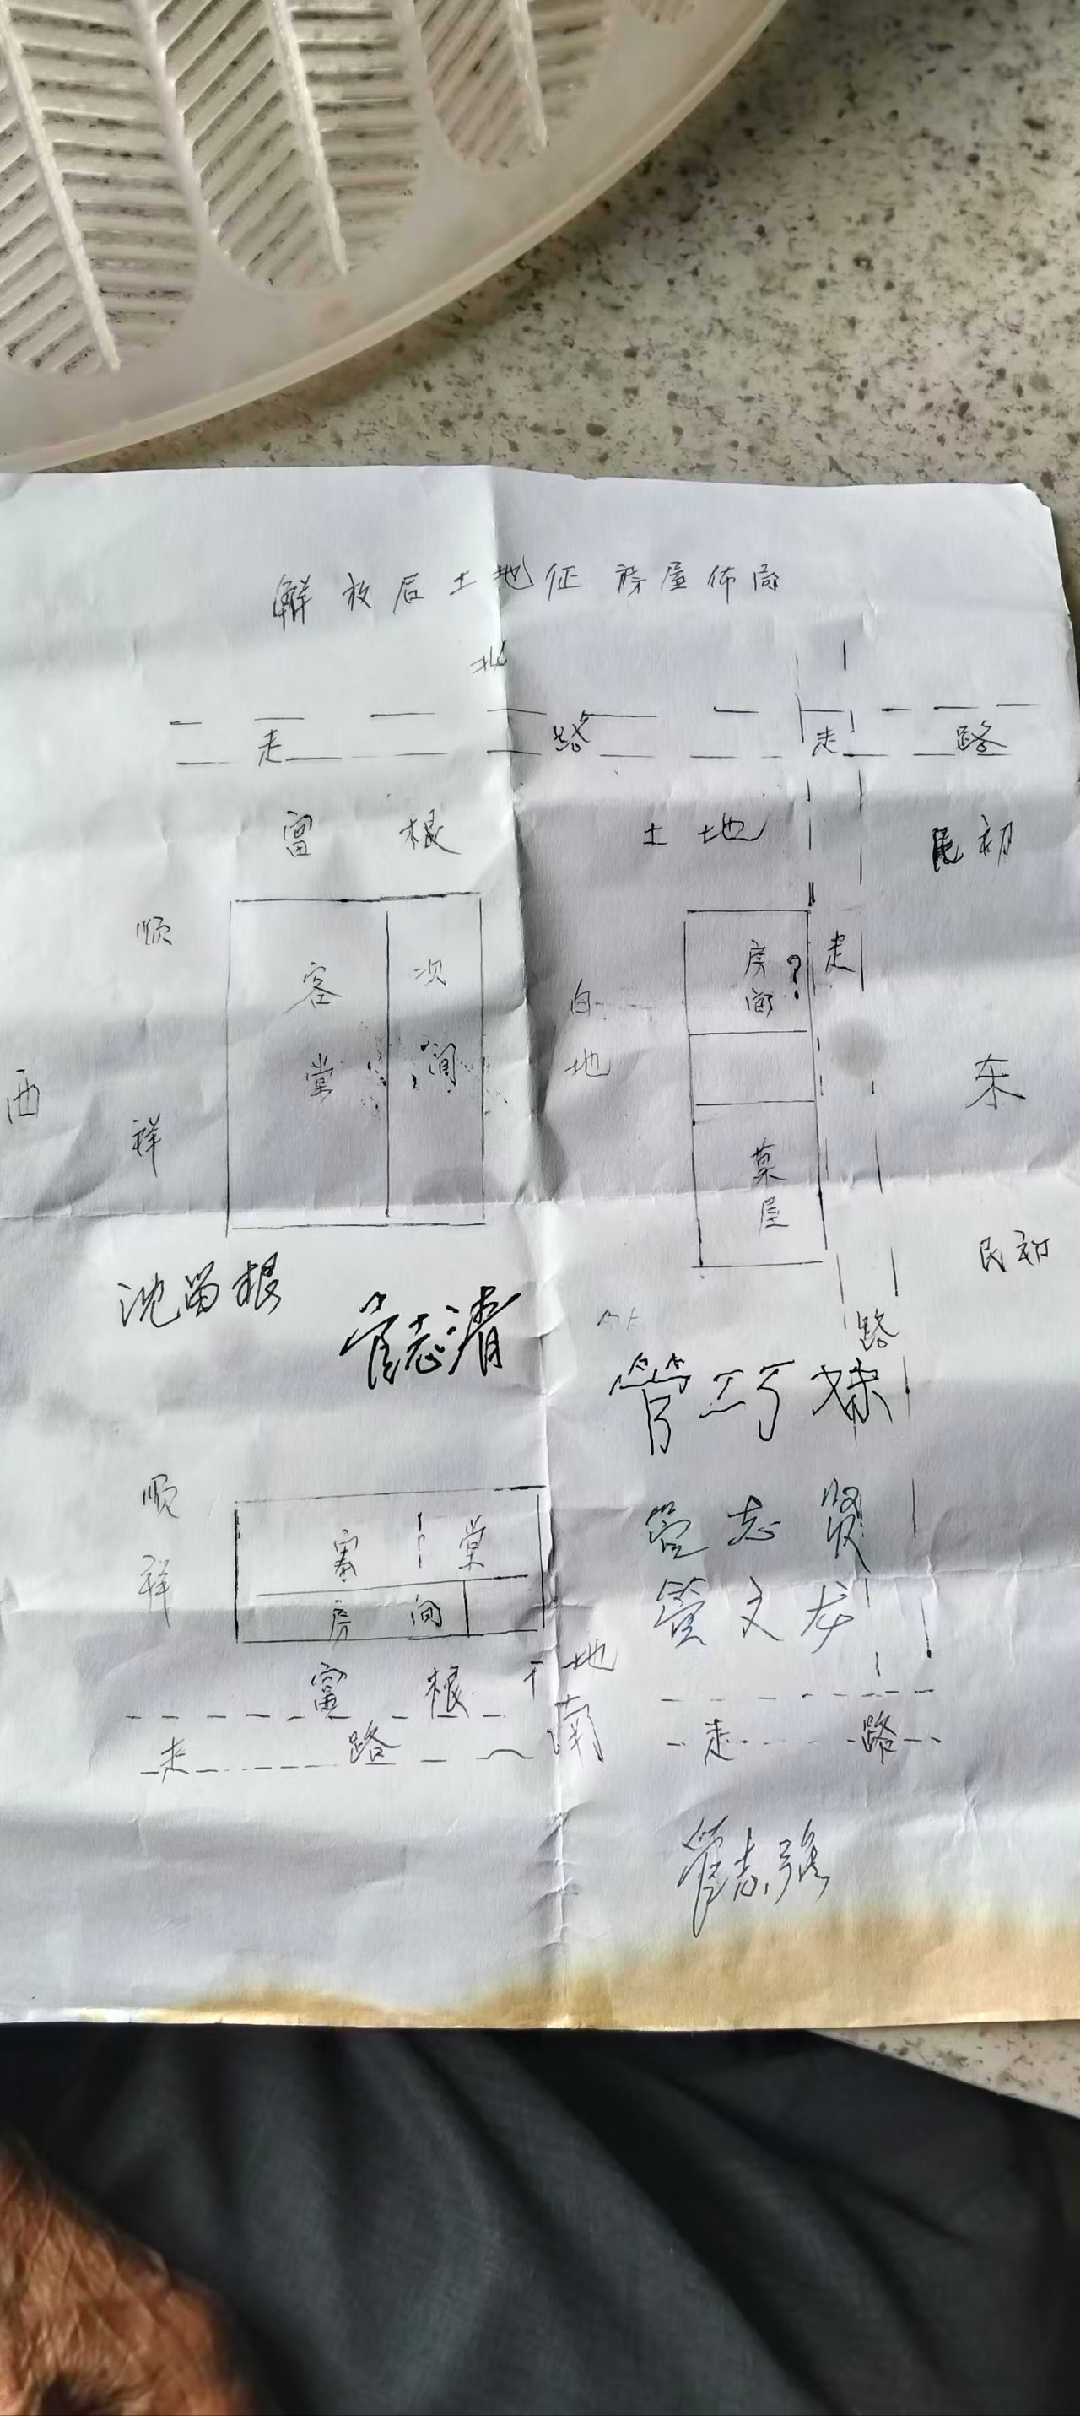 解放后土地征房屋佈局
北
走 路 走 路
富根 土地 民初
顺祥
客堂
次间
白地
房间?
走
西
东
草屋
民初
沈留根
管志清
路
管巧妹
顺祥
客堂
管志贤
房间
管文龙
富根 地
南
走 路
走 路
管志强